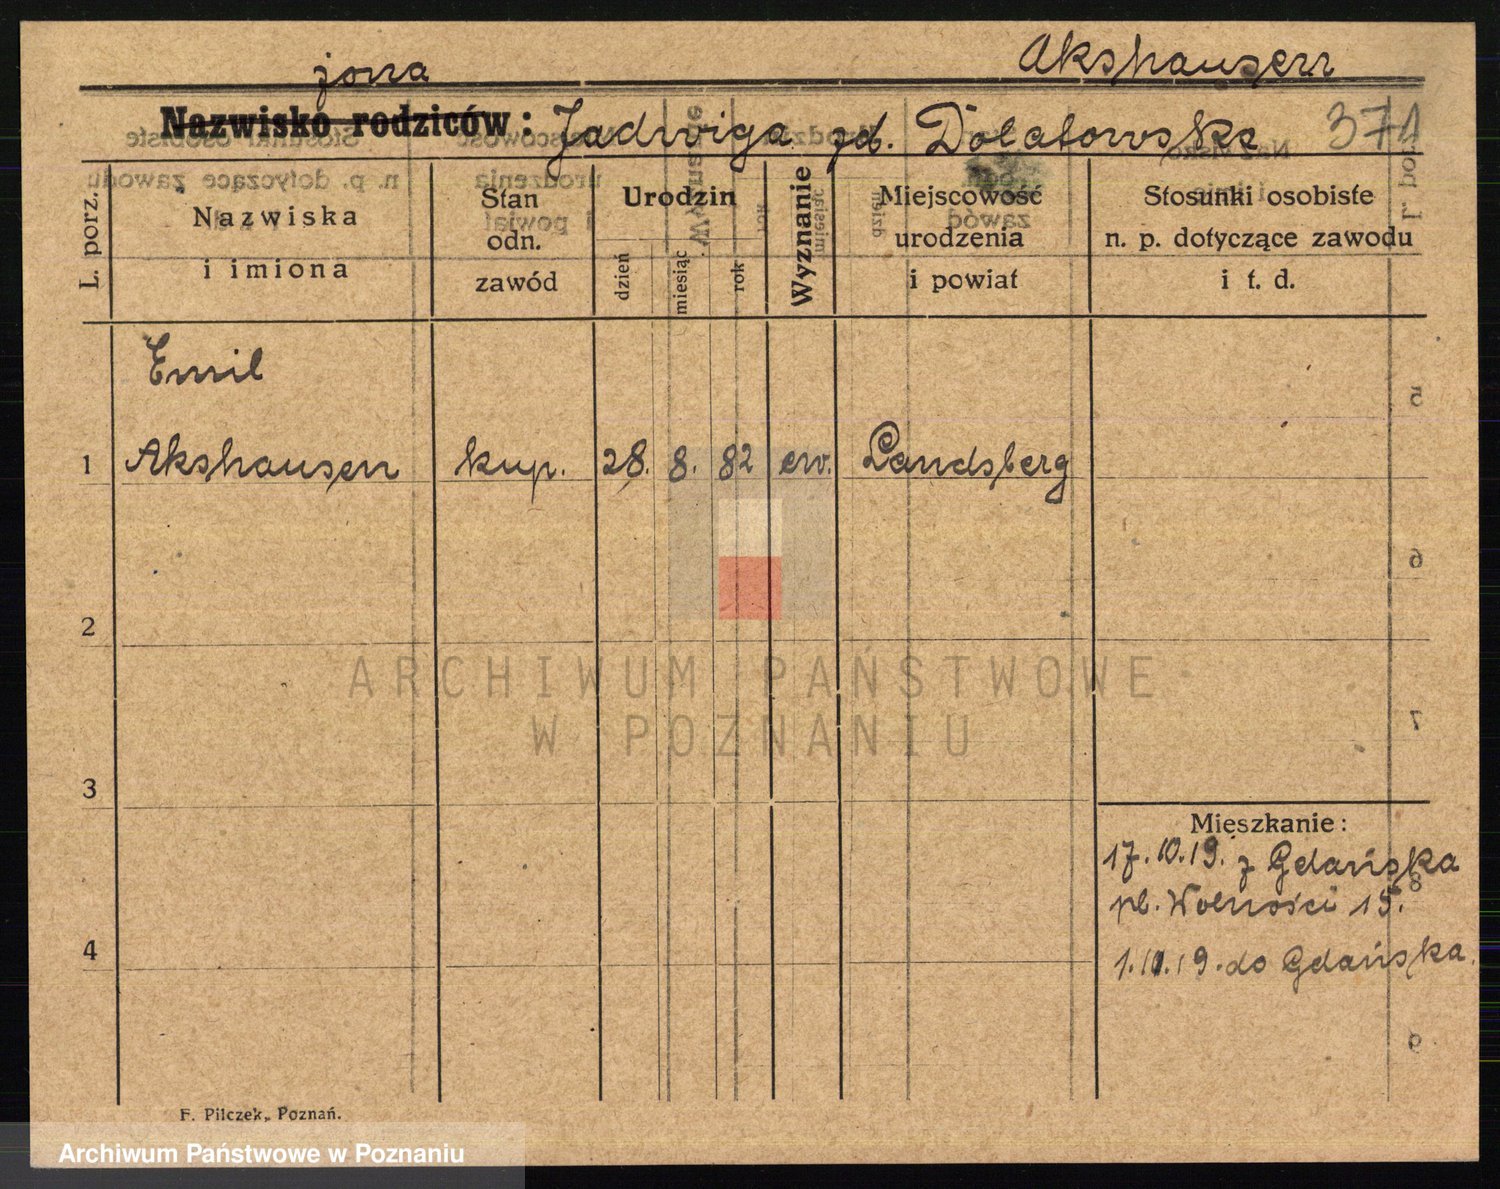 Akshausen
żona
Nazwisko rodziców: Jadwiga zd. Dolatowska 371
L. porz.
Nazwiska
i imiona
Stan
odn.
zawód
Urodzin
dzień
miesiąc
rok
Wyznanie
Miejscowość
urodzenia
i powiat
Stosunki osobiste
n. p. dotyczące zawodu
i t. d.
Emil
1 Akshausen kup. 28. 8. 82 ew. Landsberg
2
3
4
Mieszkanie:
17.10.19. z Gdańska
pl. Wolności 15.
do Gdańska.
5
6
7
8
9
F. Pilczek, Poznań.
ARCHIWUM PAŃSTWOWE
W POZNANIU
Archiwum Państwowe w Poznaniu